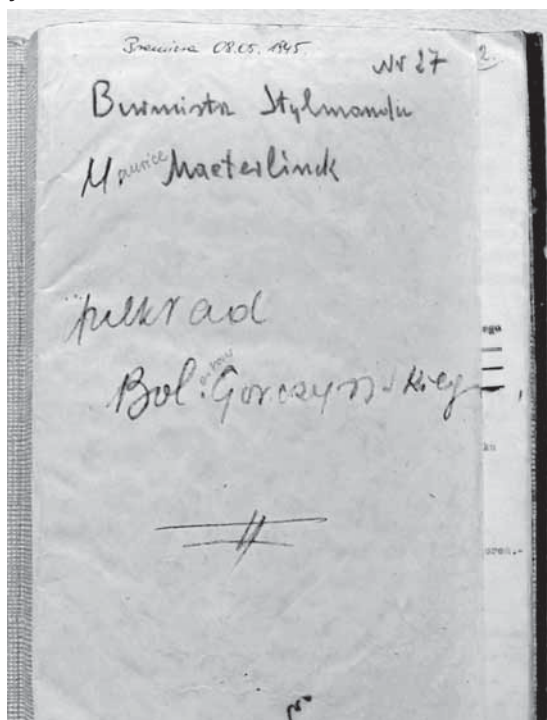 Premiera 08.05.1945.
Nr 27
2.
Burmistrz Stylmondu
Maurice Maeterlinck
przekład
Bol. Gorczyńskiego